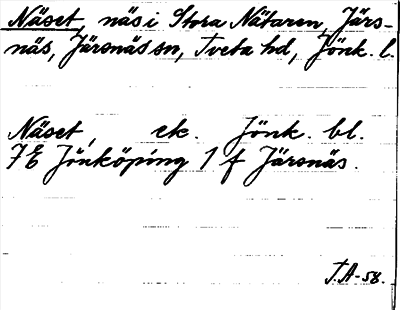 Näset, näs i Stora Nätaren, Järs-
näs, Järsnäs sn, Tveta hd, Jönk. l.
Näset, ek. Jönk. bl.
7E Jönköping 1 f Järsnäs.
T.A-58.